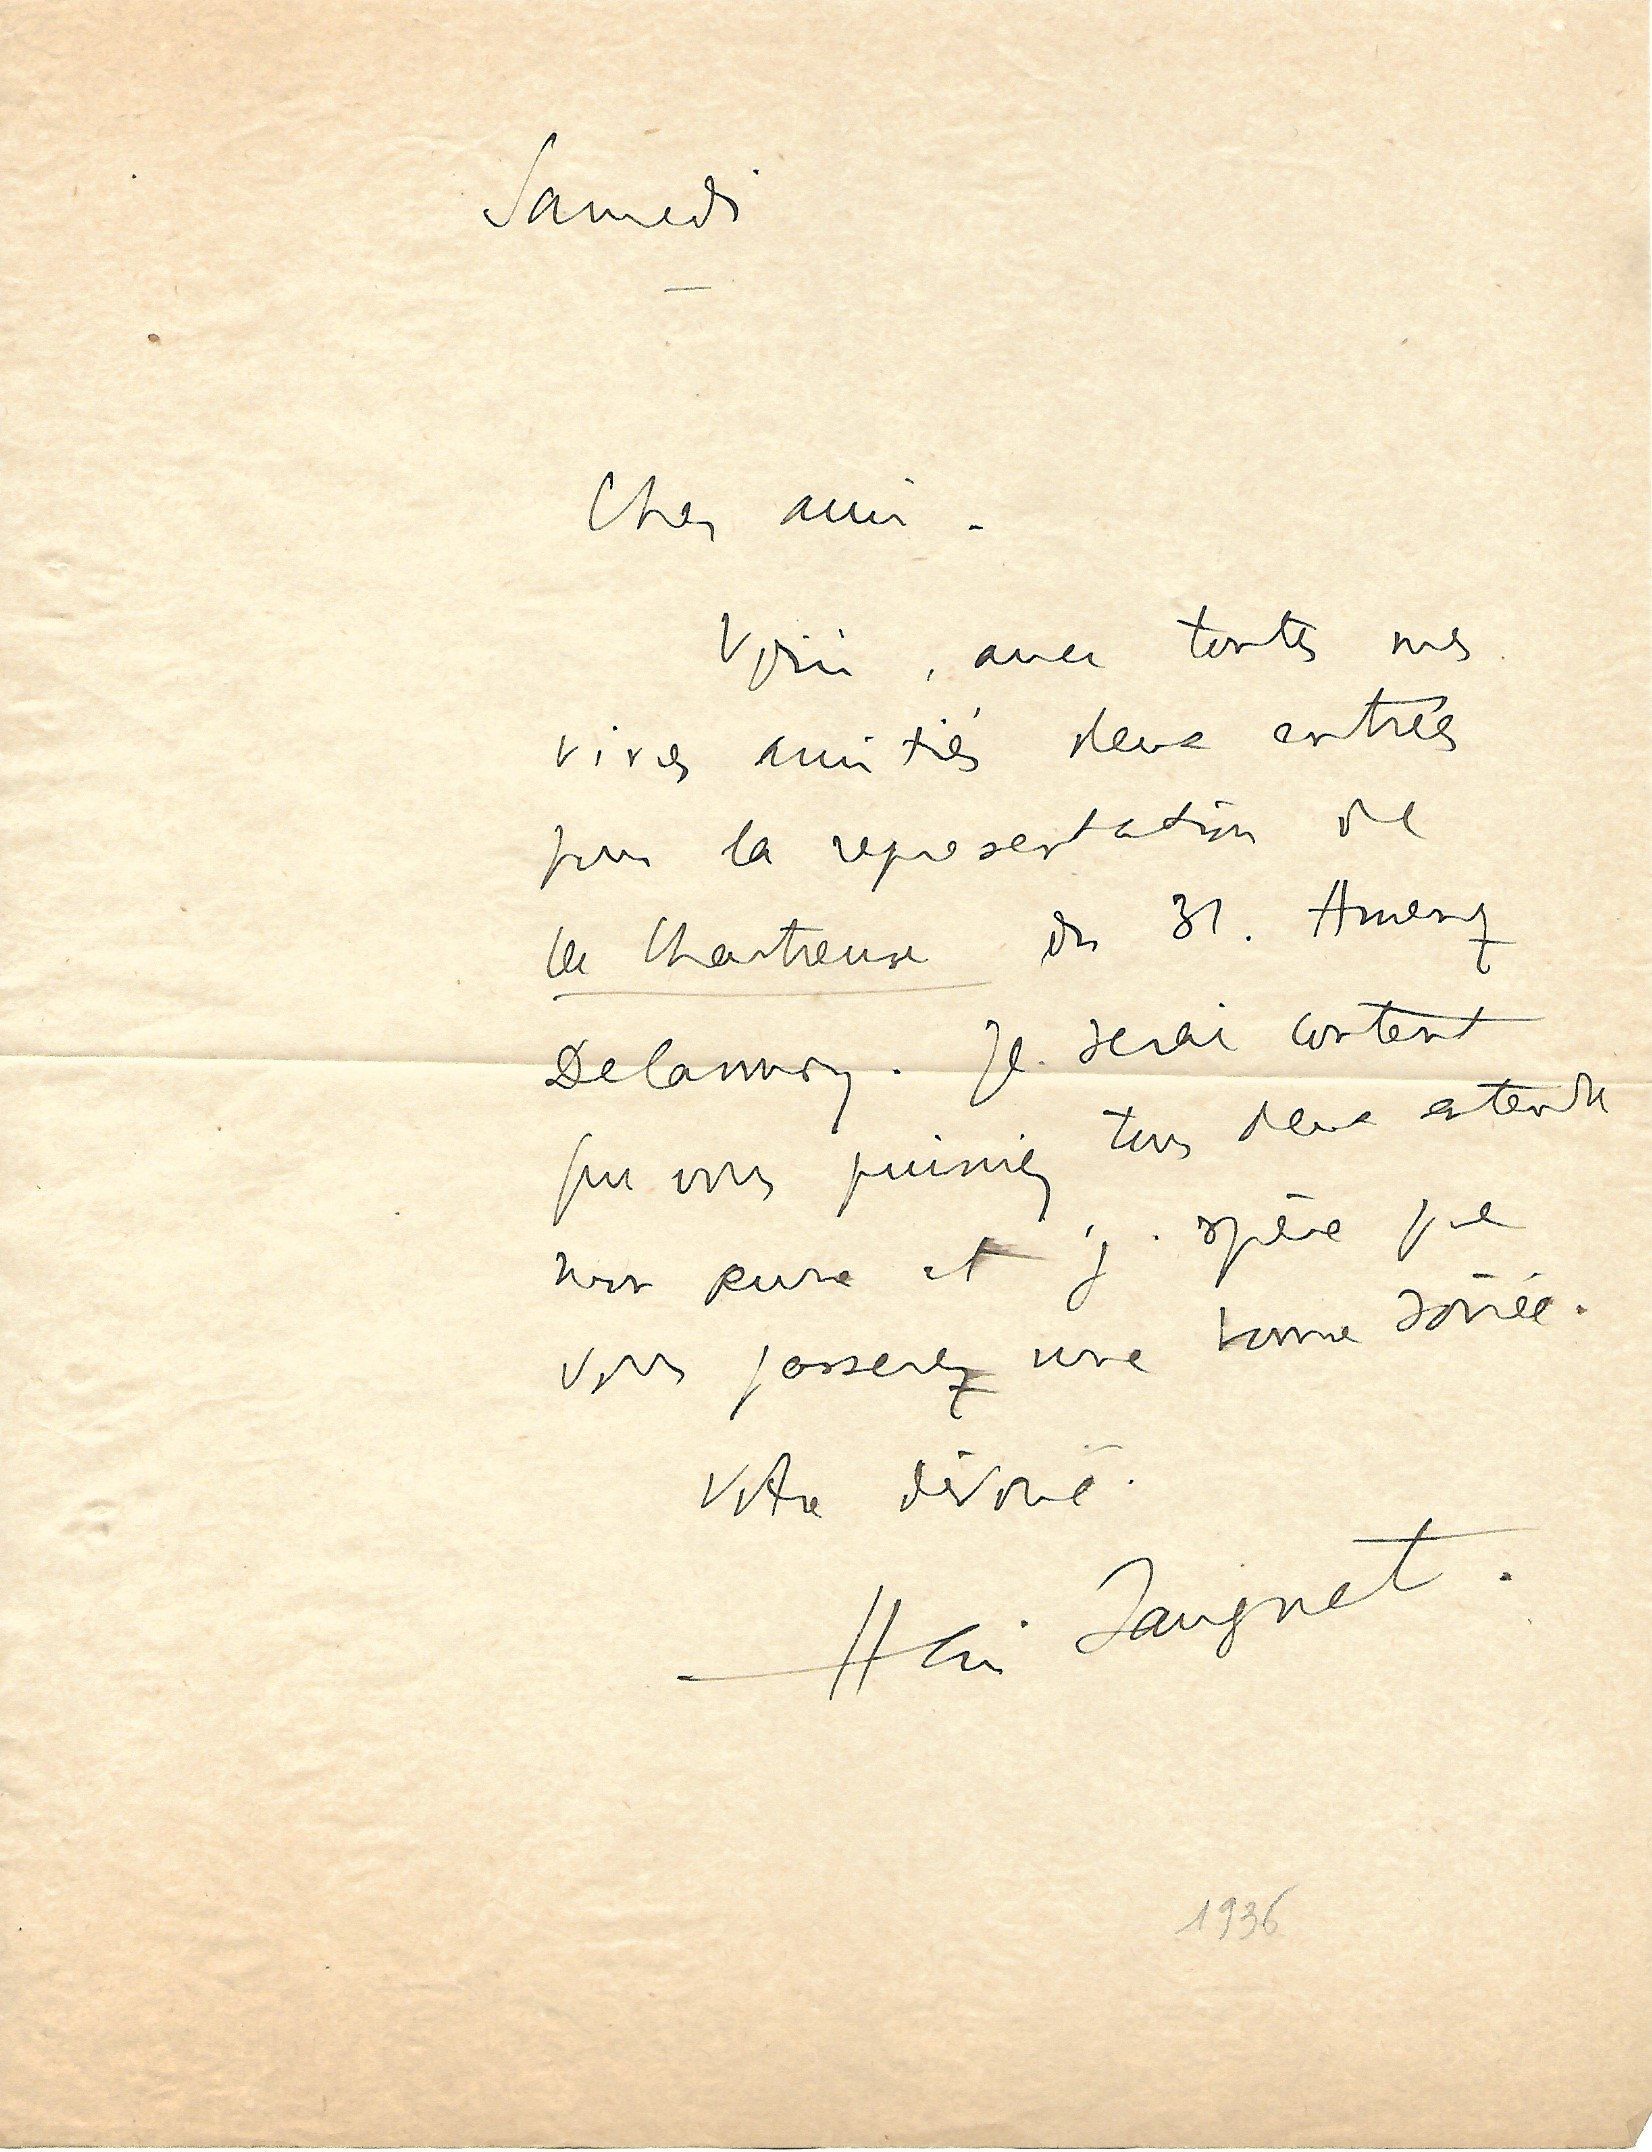 Samedi
Cher ami -
Voici, avec toutes mes
vives amitiés deux entrées
pour la représentation de
la Chartreuse du 31. Amenez
Delannoy. Je serai content
que vous puissiez tous deux entendre
mon œuvre et j'espère que
vous passerez une bonne soirée.
Votre dévoué.
Henri Sauguet.
1936